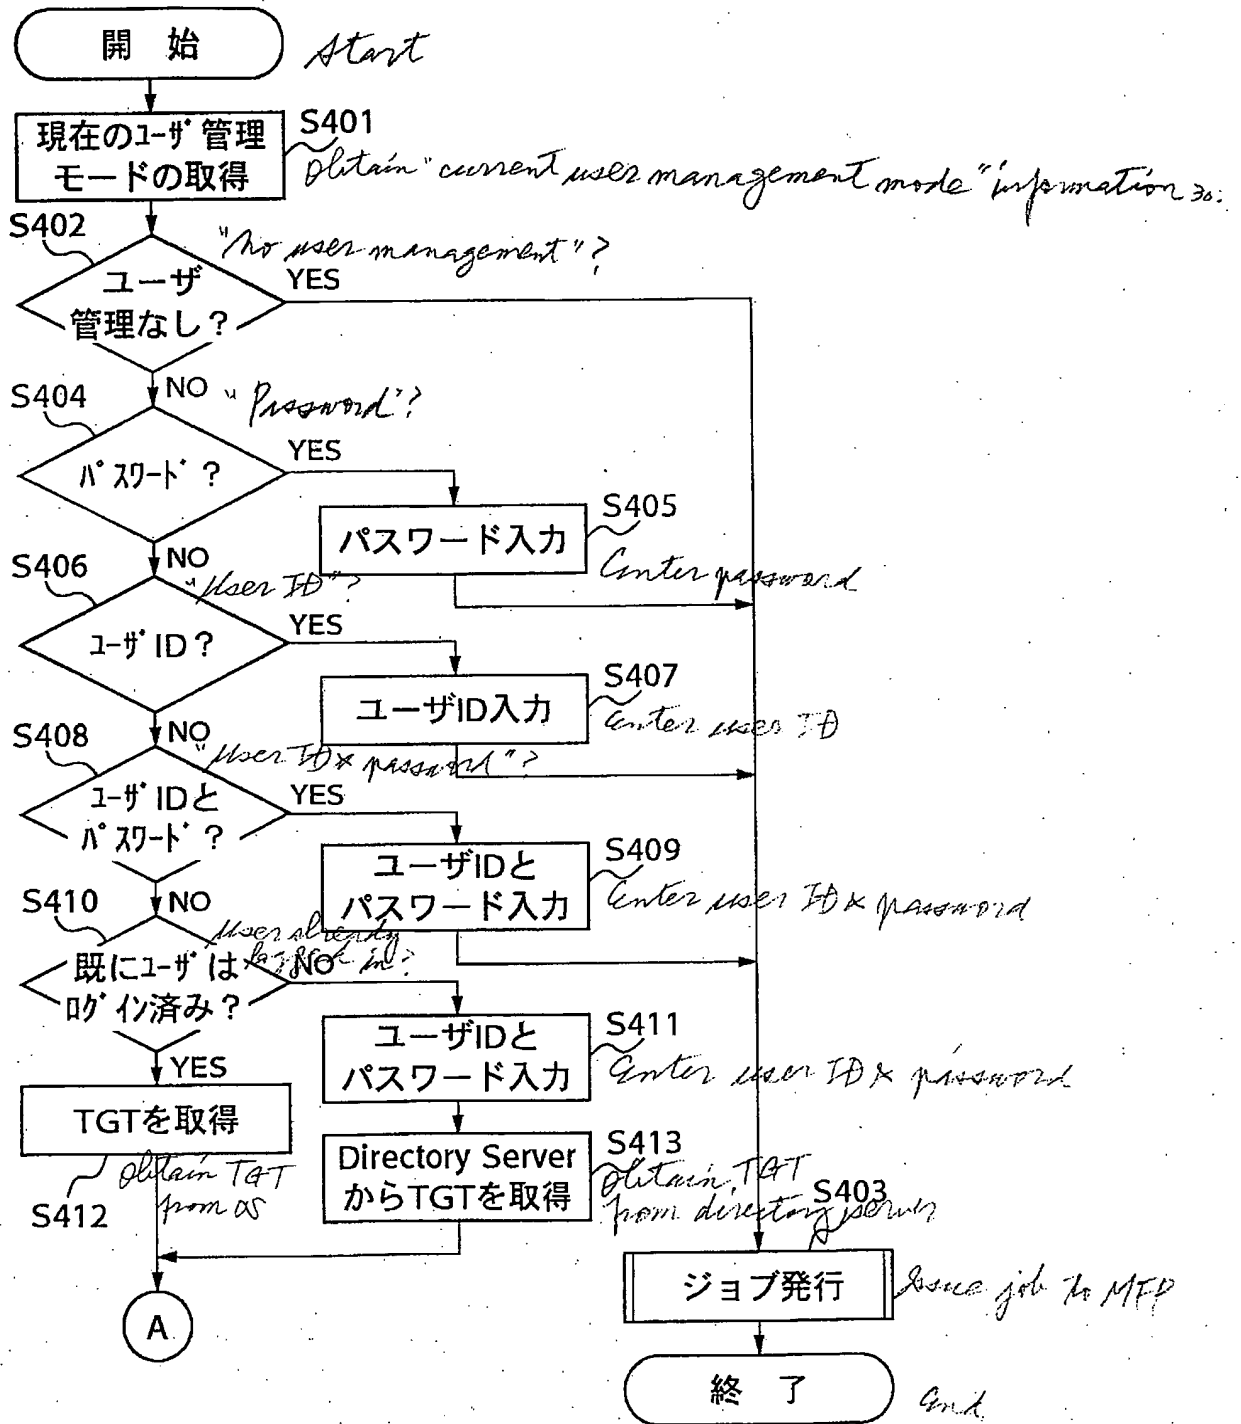 開 始
Start
現在のﾕｰｻﾞ管理
モードの取得
S401
Obtain "current user management mode" information
S402
"No user management"?
ユーザ
管理なし?
YES
NO
S404
"Password"?
ﾊﾟｽﾜｰﾄﾞ?
YES
パスワード入力
S405
Enter password
NO
S406
"User ID"?
ﾕｰｻﾞID?
YES
ユーザID入力
S407
Enter user ID
NO
S408
"User ID & password"?
ﾕｰｻﾞIDと
ﾊﾟｽﾜｰﾄﾞ?
YES
ユーザIDと
パスワード入力
S409
Enter user ID & password
NO
S410
User already
logged in?
既にﾕｰｻﾞは
ﾛｸﾞｲﾝ済み?
NO
ユーザIDと
パスワード入力
S411
Enter user ID & password
YES
TGTを取得
S412
Obtain TGT
from OS
Directory Server
からTGTを取得
S413
Obtain TGT
from directory server
A
S403
ジョブ発行
Issue job to MFP
終 了
End